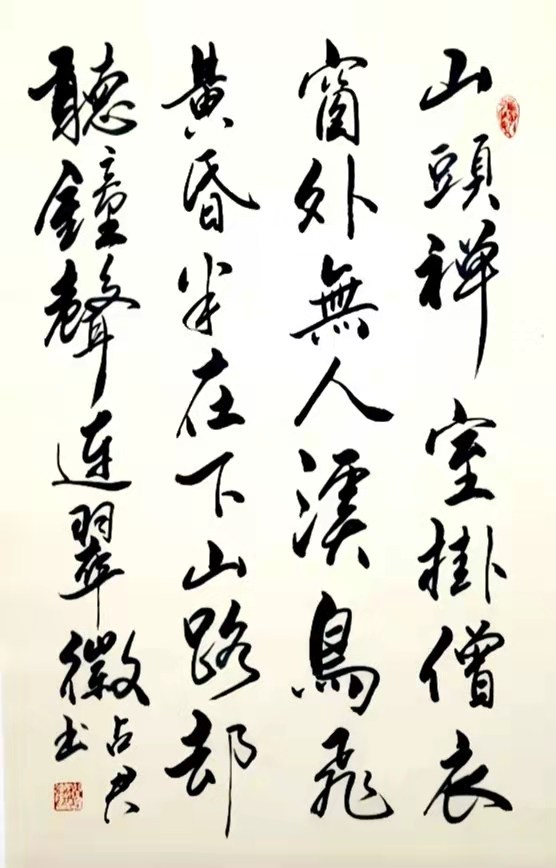 山頭禅室掛僧衣
窗外無人溪鳥飛
黃昏半在下山路却
聽鐘聲連翠徽
占君
书